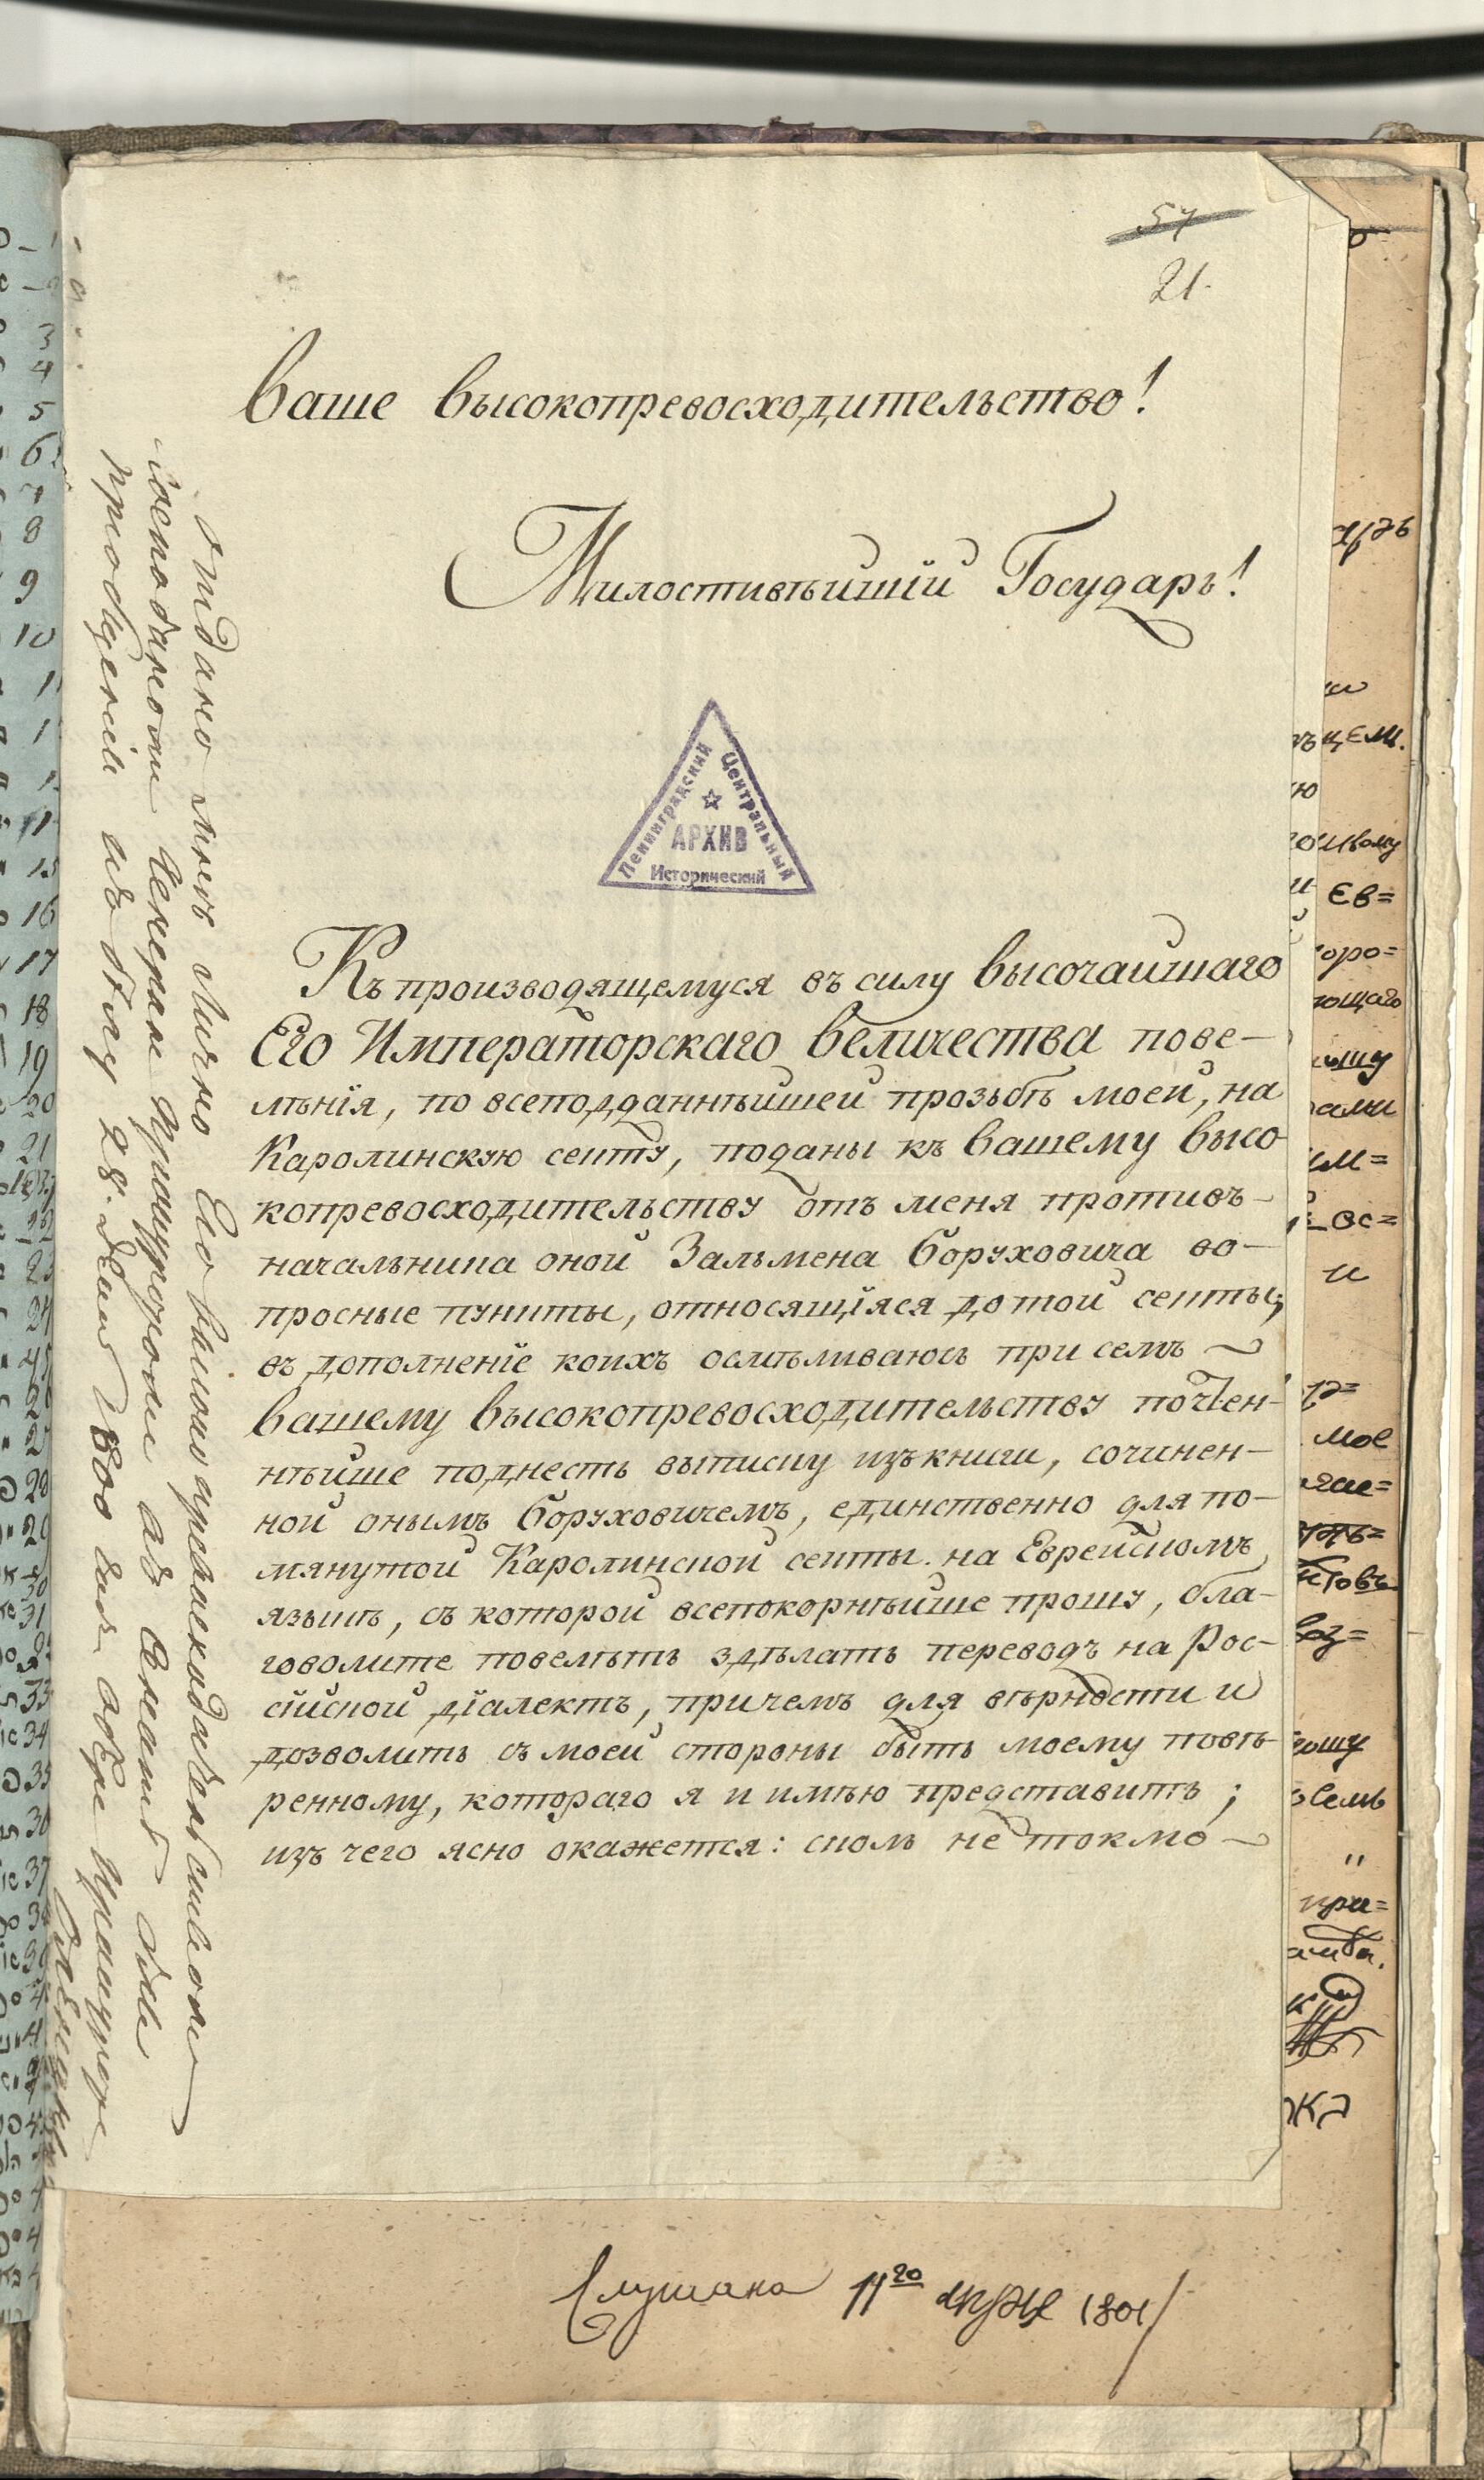 57
21.
Ваше Высокопревосходительство!
Милостивѣйшій Государь!
Ленинградский Центральный
АРХИВ
Исторический
Къ производящемуся въ силу Высочайшаго
Его Императорскаго Величества пове-
лѣнїя, по всеподданнѣйшей прозьбѣ моей, на
Каролинскую секту, поданы къ Вашему Высо
копревосходительству отъ меня противъ-
начальника оной Зальмена Боруховича во-
просные пункты, относящїяся до той секты;
въ дополненїе коихъ осмѣливаюсь при семъ
Вашему Высокопревосходительству почтен-
нѣйше поднесть выписку изъ книги, сочинен-
ной онымъ Боруховичемъ, единственно для по-
мянутой Каролинской секты на Еврейскомъ
языкѣ, съ которой всепокорнѣйше прошу, бла-
говолите повелѣть здѣлать переводъ на Рос-
сїйской дїалектъ, причемъ для вѣрности и
дозволить съ моей стороны быть моему повѣ-
ренному, котораго я и имѣю представить;
изъ чего ясно окажется: сколь не токмо
Отдано мнѣ лично Его высокопревосходительством
господином Генерал Прокурором
28. 1800
Слушана 11го 1801